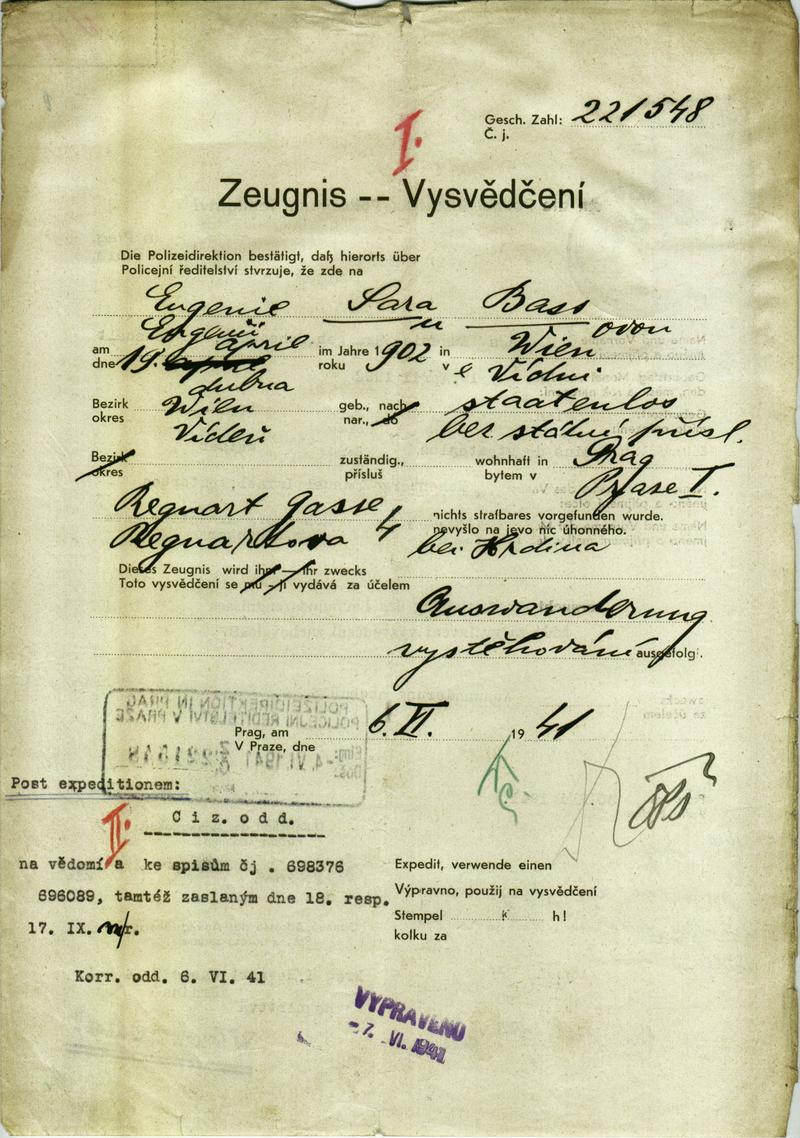 Gesch. Zahl: 221548
Č. j.
I.
Zeugnis -- Vysvědčení
Die Polizeidirektion bestätigt, daß hierorts über
Policejní ředitelství stvrzuje, že zde na
Eugenie Sara Bass
Evgenii u ovou
april
am 19. april im Jahre 1902 in Wien
dne roku v e Vídni
dubna
Bezirk Wien geb., nach staatenlos
okres Vídeň nar., do bez státní přísl.
Bezirk zuständig., wohnhaft in Prag
okres přísluš bytem v Praze I.
Regnart gasse nichts strafbares vorgefunden wurde.
Regnartova 4 nevyšlo na jevo nic úhonného.
bei Hrdina
Dieses Zeugnis wird ihm — ihr zwecks
Toto vysvědčení se mu – jí vydává za účelem
Auswanderung
vystěhování ausgefolg.
POLIZEIDIREKTION IN PRAG
POLICEJNÍ ŘEDITELSTVÍ V PRAZE
Eing.: -4. VI. 1941 221548
Došlo:
Prag, am 6. VI. 1941
V Praze, dne
Post expeditionem:
II.
Ciz. odd.
na vědomí a ke spisům čj . 698376
696089, tamtéž zaslaným dne 18. resp.
17. IX. m/r.
Korr. odd. 6. VI. 41
Expedit, verwende einen
Výpravno, použij na vysvědčení
Stempel K h!
kolku za
VYPRAVENO
-7. VI. 1941